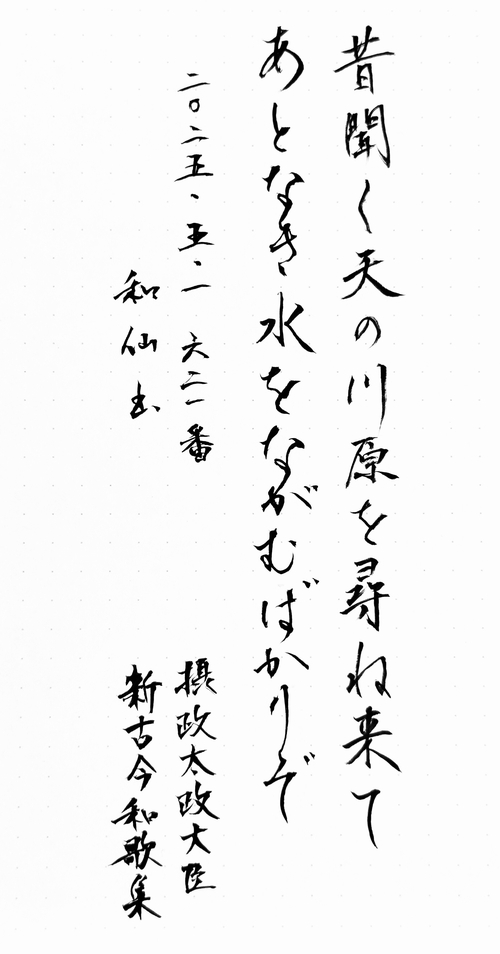 昔聞く天の川原を尋ね来て
あとなき水をながむばかりぞ
二〇二五・五・一 六二一番
和仙书
摂政太政大臣
新古今和歌集